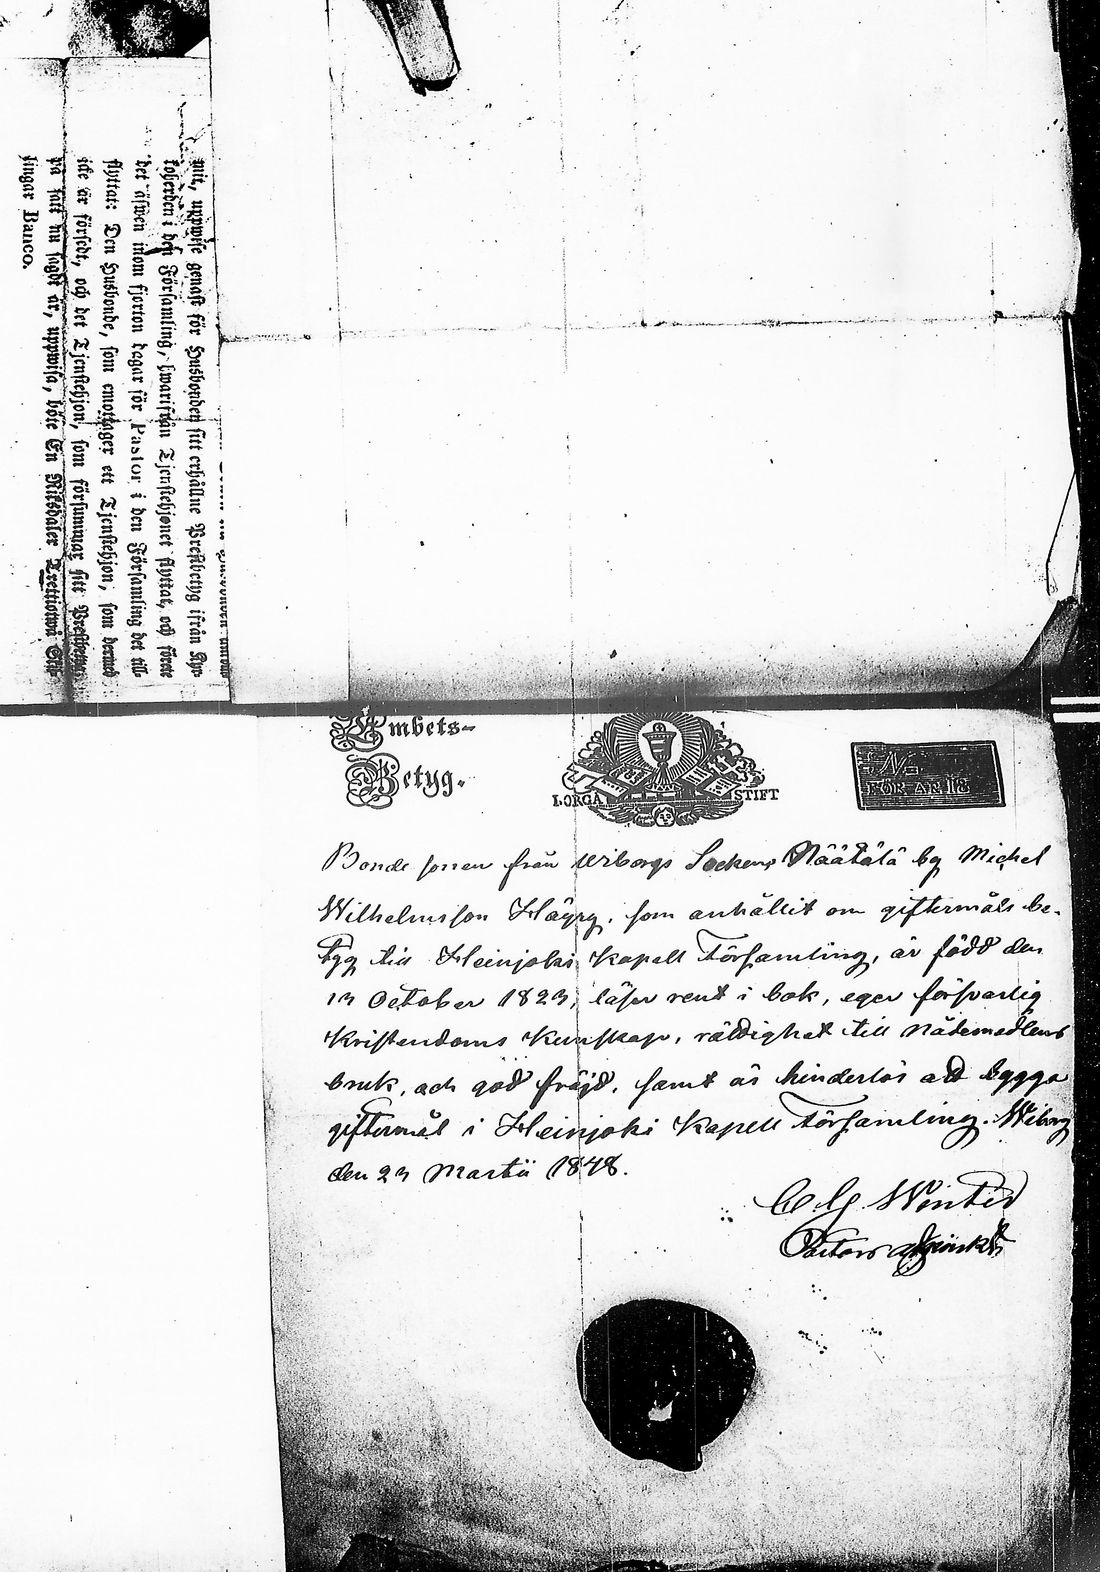 mit, uppwise genast för Husbonden sitt erhållne Prestbetyg ifrån Ky-
koherden i den Församling, hwarifrån Tjenstehjonet flyttat, och förete
det äfwen inom fjorton dagar för Pastor i den Församling det till-
flyttat: Den Husbonde, som emottager ett Tjenstehjon, som dermed
icke är försedt, och det Tjenstehjon, som försummar sitt
på sätt nu sagdt är, uppwisa, böte En Riksdaler Trettiotwå Skil-
lingar Banco.
Embets-
Betyg.
BORGÅ STIFT
No
FÖR ÅR 18
Bonde sonen från Wiborgs Sockens Näätälä by Michel
Wilhelmsson Häyry, som anhållit om giftermåls be-
tyg till Heinjoki Kapell Församling, är född den
13 October 1823, läser rent i bok, eger försvarlig
Kristendoms Kunskap, rättighet till Nådemedlens
bruk, och god fräjd, samt är hinderlös att bygga
giftermål i Heinjoki Kapell Församling. Wiborg
den 23 Martii 1848.
C. G. Winter
Pastors